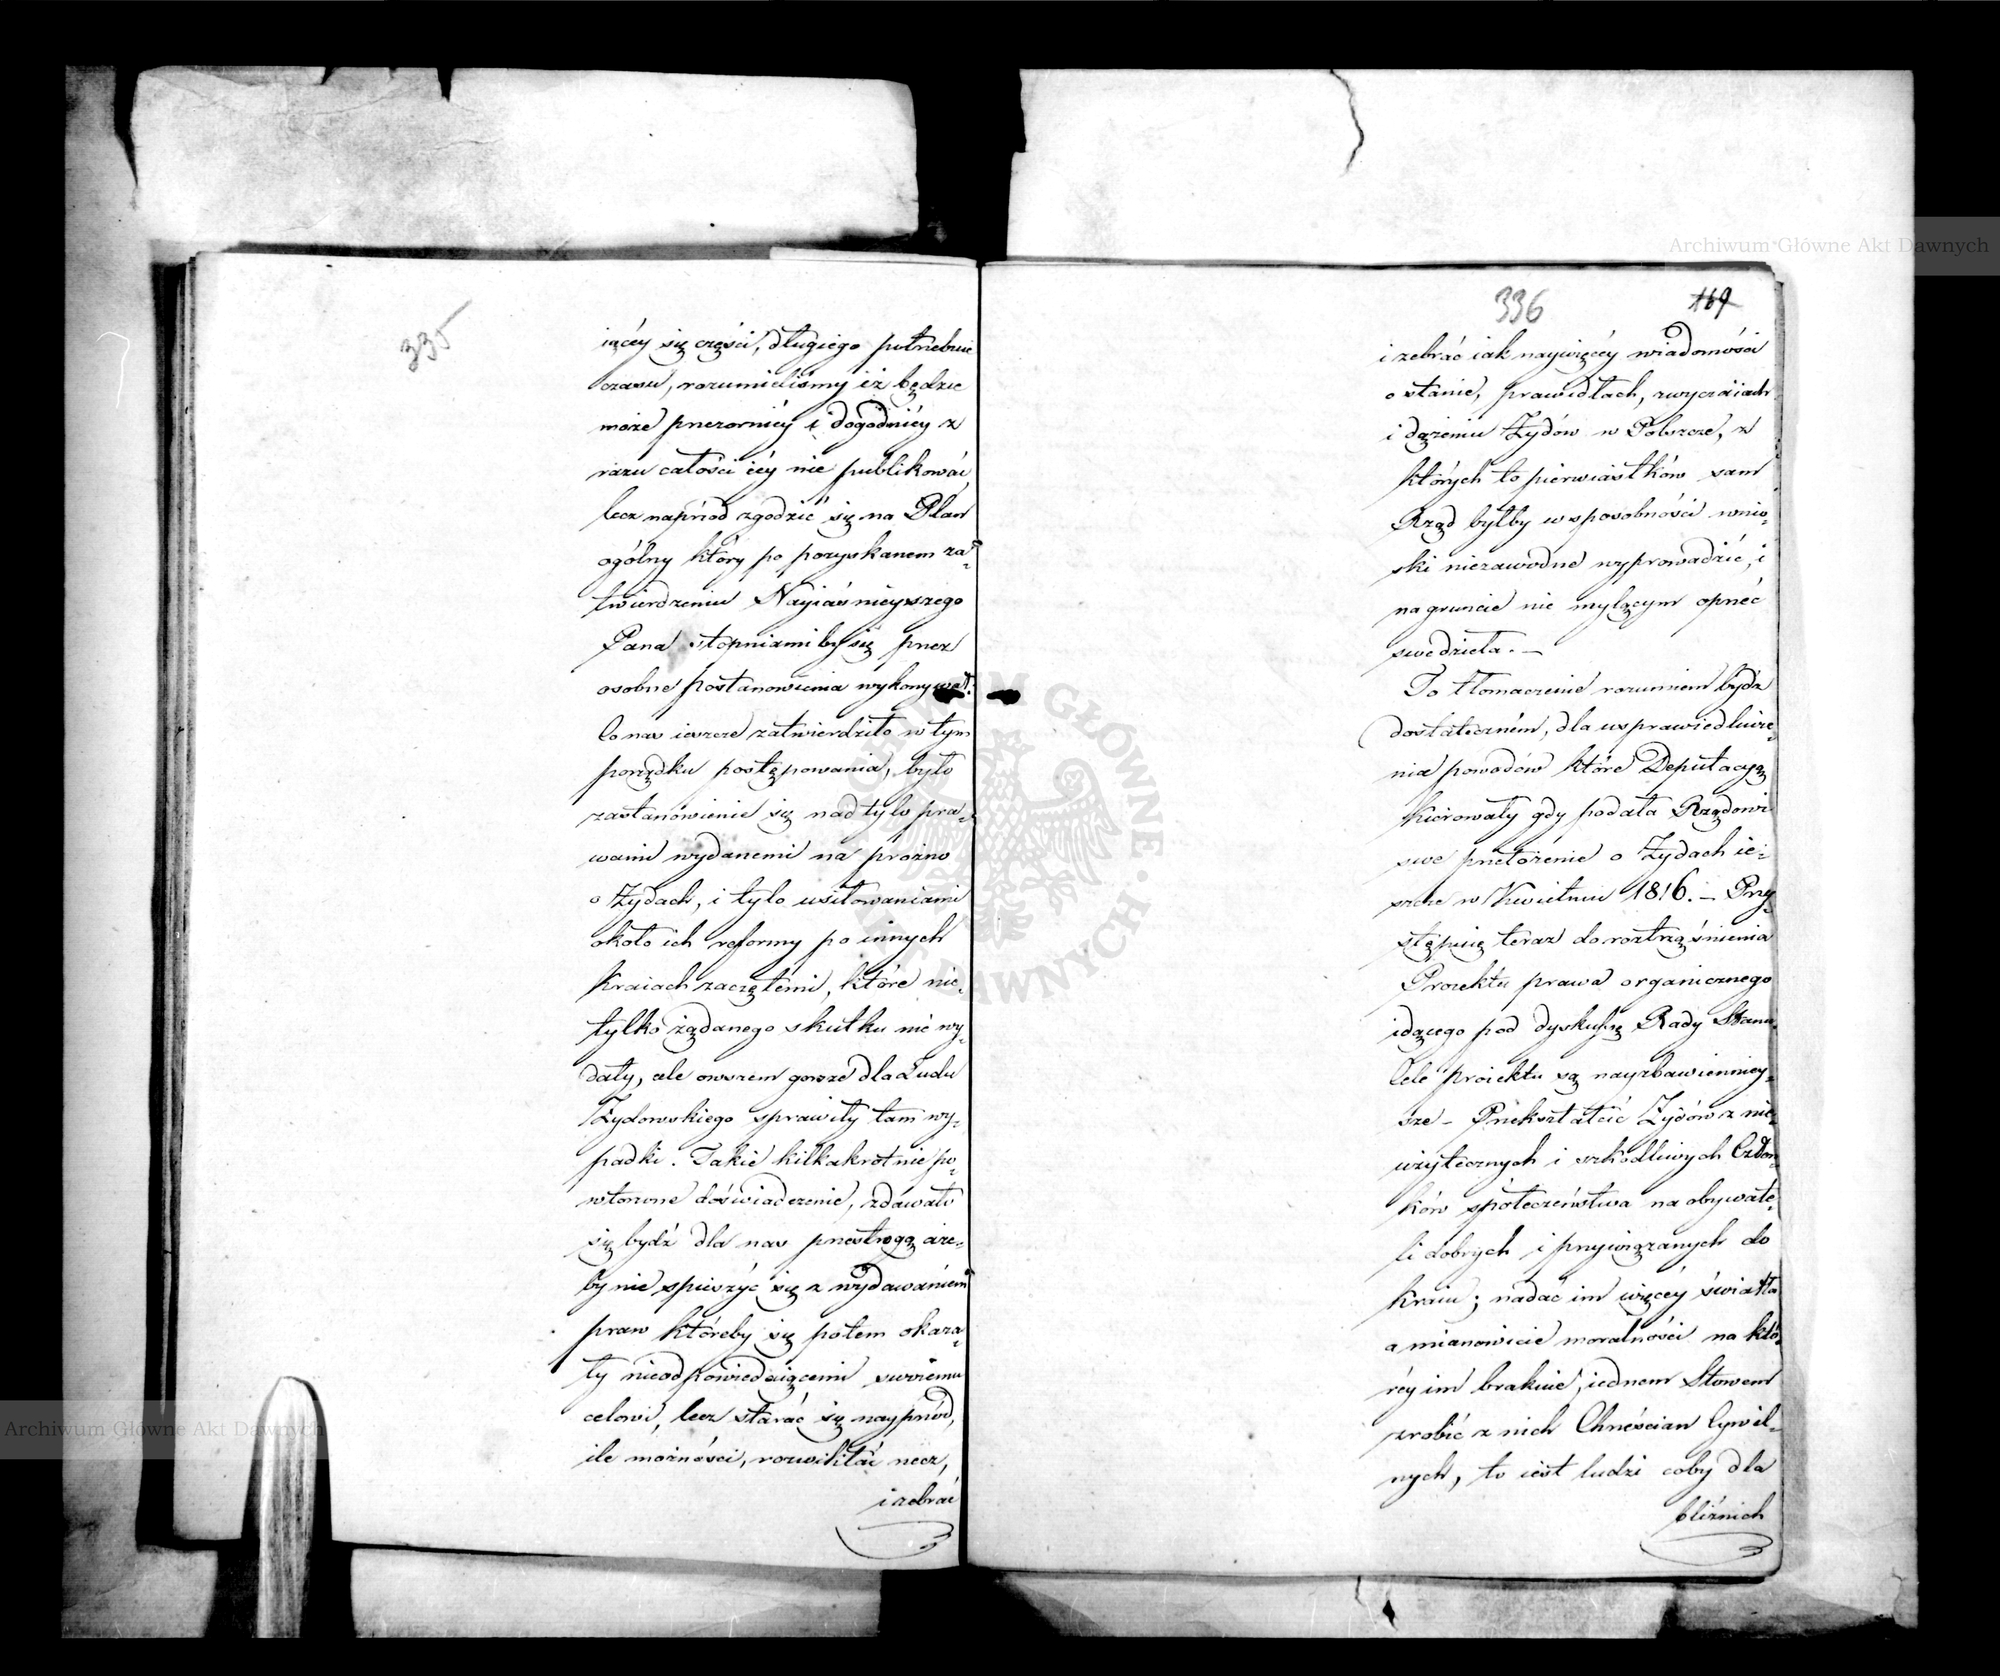 335
iącéy się części, długiego potrzebuie
czasu, rozumieliśmy iż będzie
może przezorniéy i dogodniéy z
razu całości iéy nie publikować,
lecz naprzód zgodzić się na Plan
ogólny który po pozyskanem za=
twierdzeniu Nayiaśnieyszego
Pana stopniami by się przez
osobne postanowienia wykonywał.
Co nas ieszcze zatwierdziło w tym
porządku postępowania, było
zastanowienie się nad tylo pra=
wami wydanemi na próżno
o Żydach, i tylo usiłowaniami
około ich reformy po innych
Kraiach zaczętemi, które nie=
tylko żądanego skutku nie wy=
dały, ale owszem gorsze dla Ludu
Żydowskiego sprawiły tam wy=
padki. Takie kilkakrotnie po=
wtorzone doświadczenie, zdawało
się bydź dla nas przestrogą aże=
by nie spieszyć się z wydawaniem
praw któreby się potem okaza=
ły nieodpowiedaiącemi swoiemu
celowi, lecz starać się nayprzód,
ile możności, rozwikłać rzecz,
i zebrać
336
169
i zebrać iak naywięcéy wiadomości
o stanie, prawidłach, zwyczaiach
i dążeniu Żydów w Polszcze, z
których to pierwiastków sam
Rząd byłby w sposobności wnio=
ski niezawodne wyprowadzić, i
na gruncie nie mylącym oprzeć
swe dzieła. —
To tłomaczenie rozumiem bydź
dostateczném, dla usprawiedliwie=
nia powodów które Deputacyą
kierowały gdy podała Rządowi
swe przełożenie o Żydach ie=
szcze w Kwietniu 1816. — Przy=
stępuię teraz do roztrząśnienia
Proiektu prawa organicznego
idącego pod dyskussyę Rady Stanu.
Cele proiektu są nayzbawienniey=
sze – Przekształcić Żydów z nie=
użytecznych i szkodliwych Człon=
ków społeczeństwa na obywate=
li dobrych i przywiązanych do
Kraiu; nadać im więcéy światła
a mianowicie moralności na któ=
réy im brakuie, iednem Słowem
zrobić z nich Chrześcian Cywil=
nych, to iest ludzi coby dla
bliźnich
Archiwum Główne Akt Dawnych
Archiwum Główne Akt Dawnych
ARCHIWUM GŁÓWNE AKT DAWNYCH